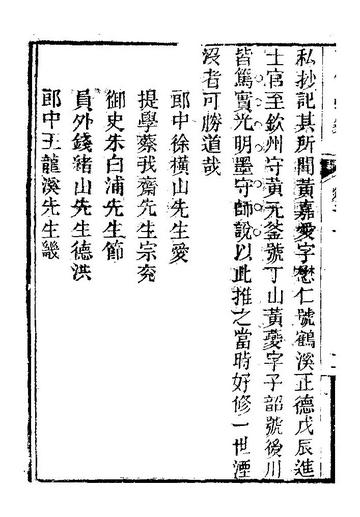 私抄記其所聞黃嘉愛字懋仁號鶴溪正德戊辰進
士官至欽州守黃元釜號丁山黃夔字子韶號後川
皆篤實光明墨守師說以此推之當時好修一世湮
沒者可勝道哉
郎中徐橫山先生愛
提學蔡我齋先生宗兗
御史朱白浦先生節
員外錢緒山先生德洪
郎中王龍溪先生畿